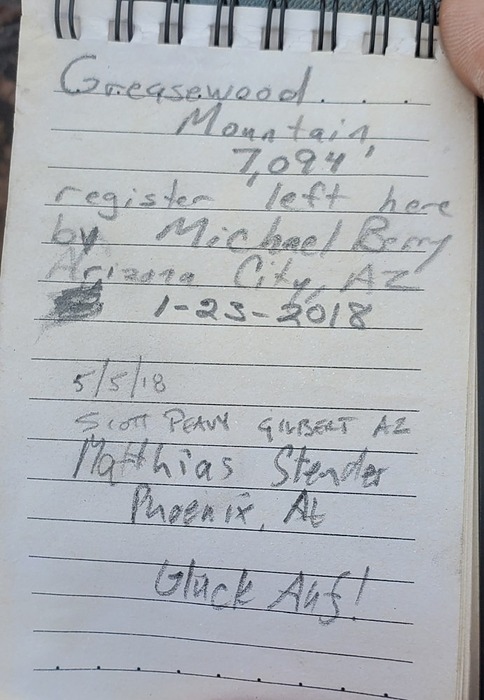 Greasewood
Mountain,
7,094'
register left here
by Michael Berry
Arizona City, AZ
1-23-2018
5/5/18
SCOTT PEAVY GILBERT AZ
Matthias Stender
Phoenix, AZ
Glück Auf!